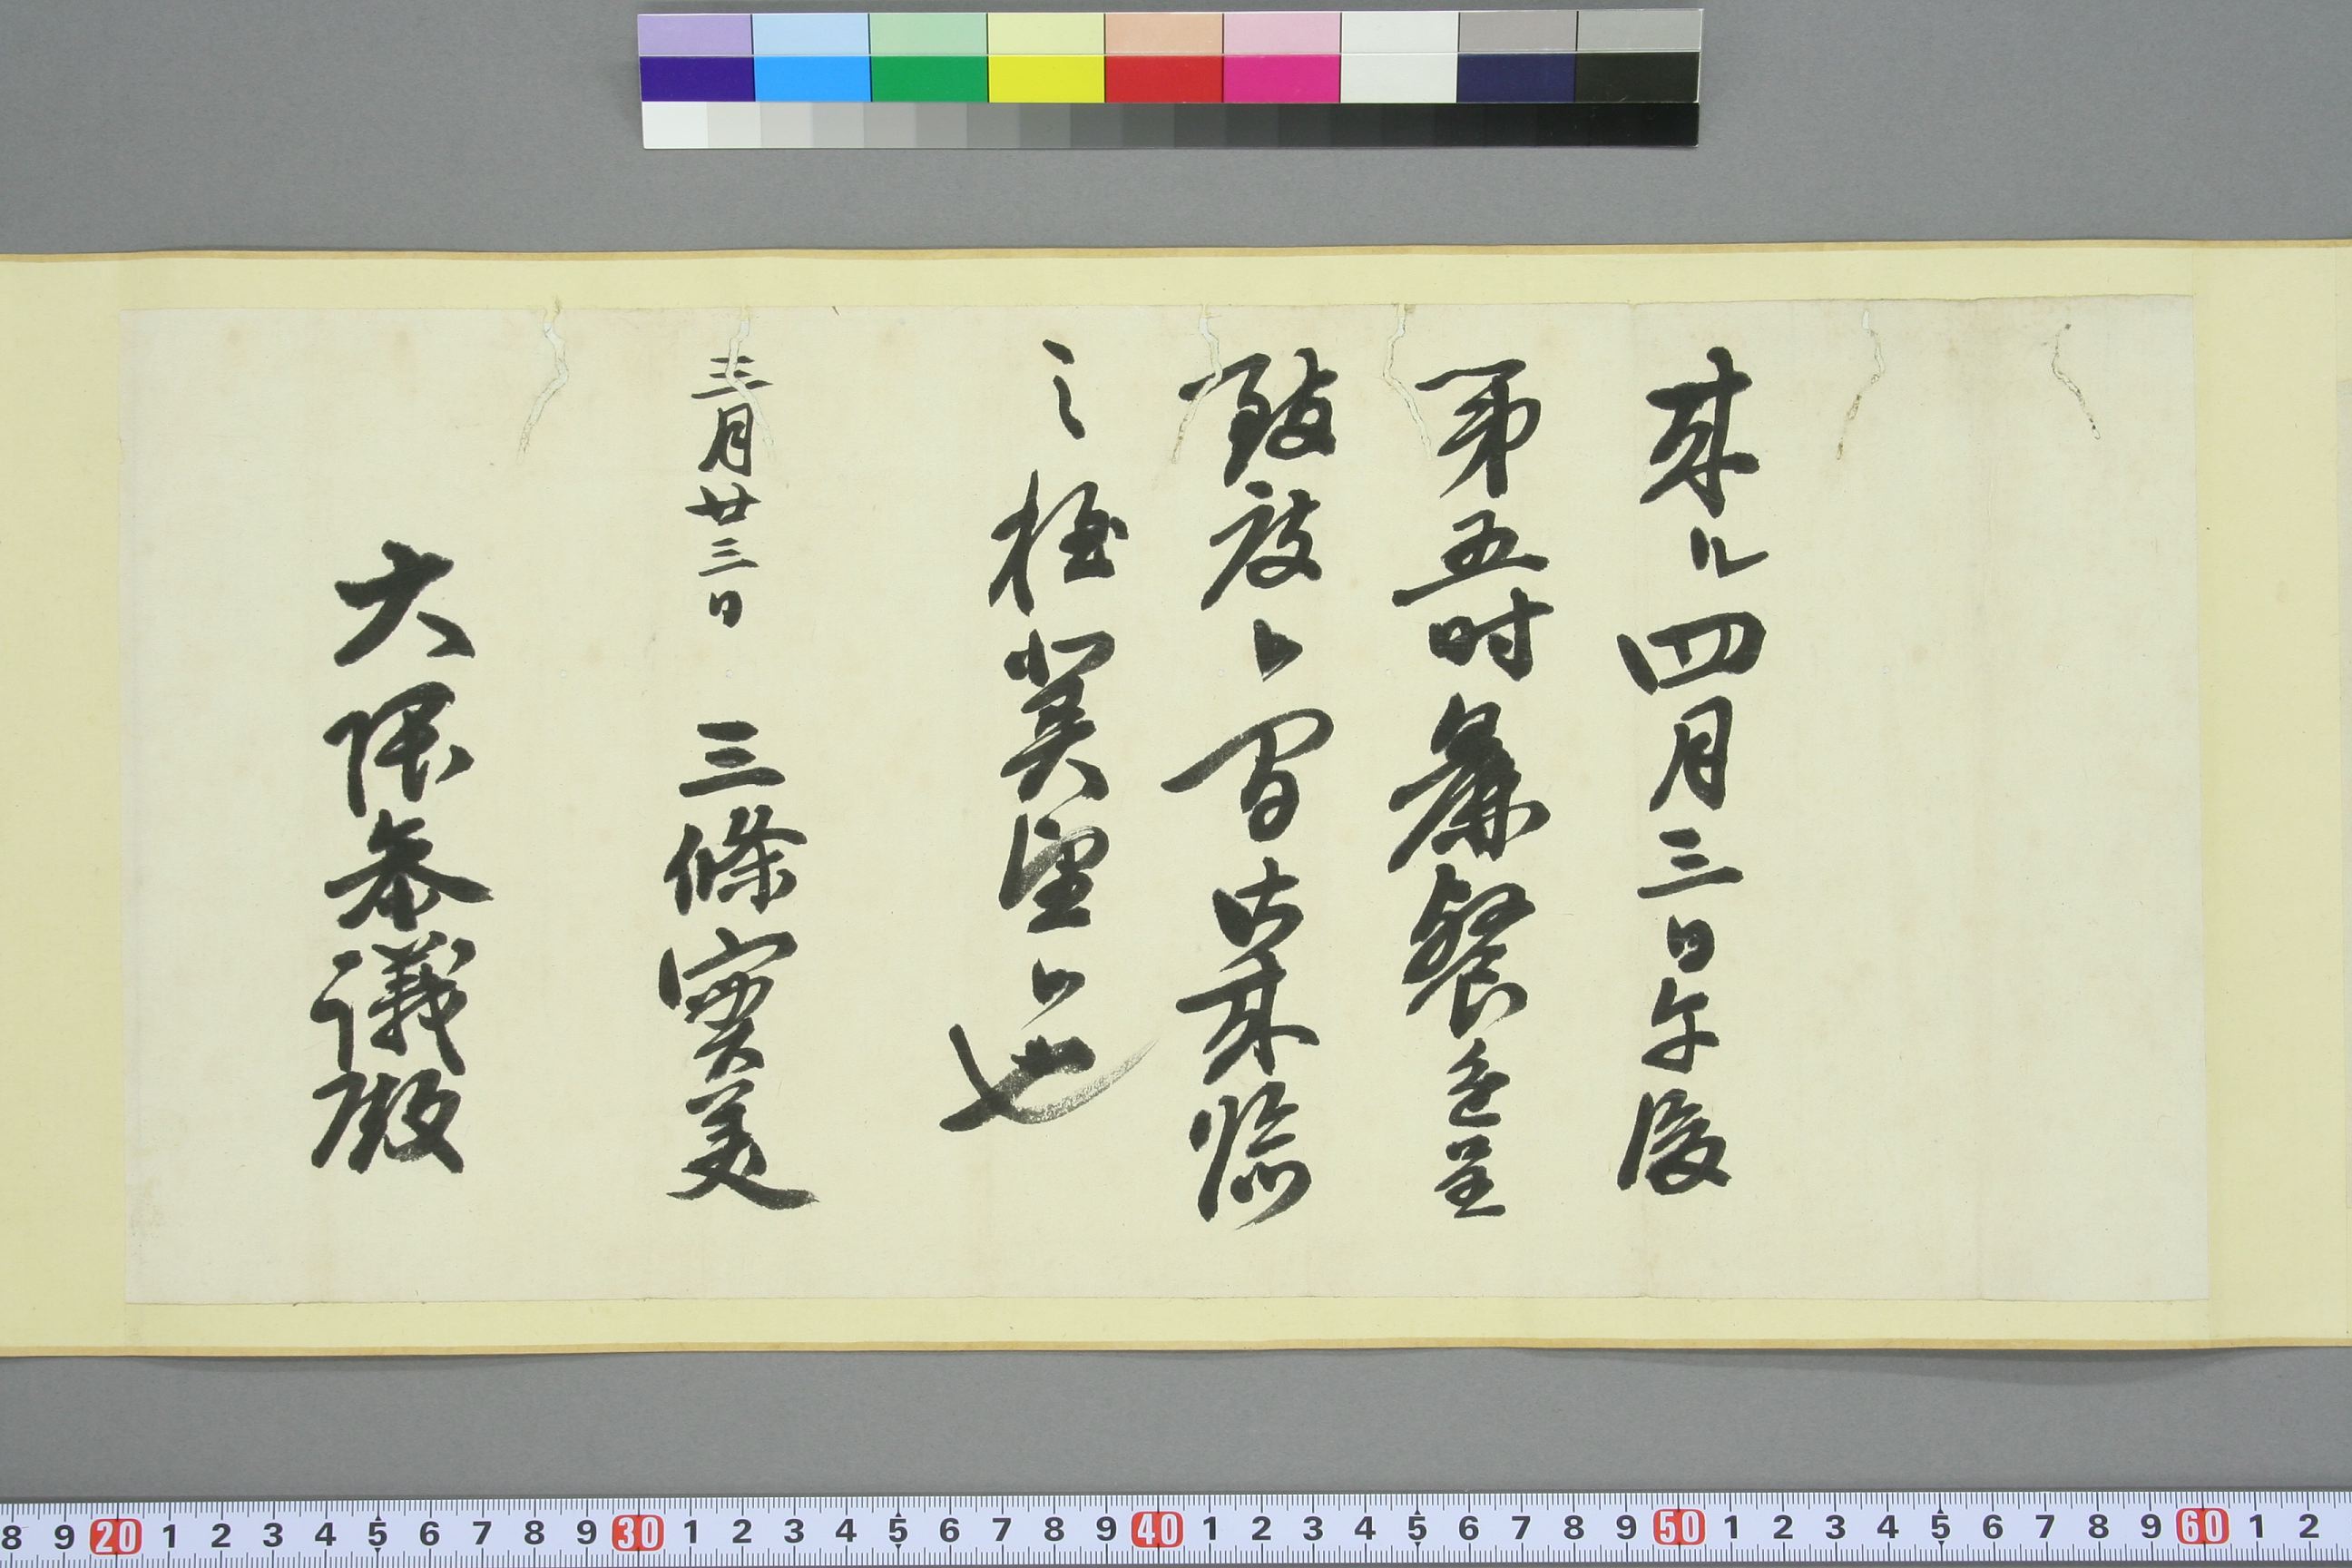 来ル四月三日午後
第五時麁餐進呈
致度候間御来臨
之程冀望候也
三月廿三日 三條實美
大隈参議殿
8 9 20 1 2 3 4 5 6 7 8 9 30 1 2 3 4 5 6 7 8 9 40 1 2 3 4 5 6 7 8 9 50 1 2 3 4 5 6 7 8 9 60 1 2